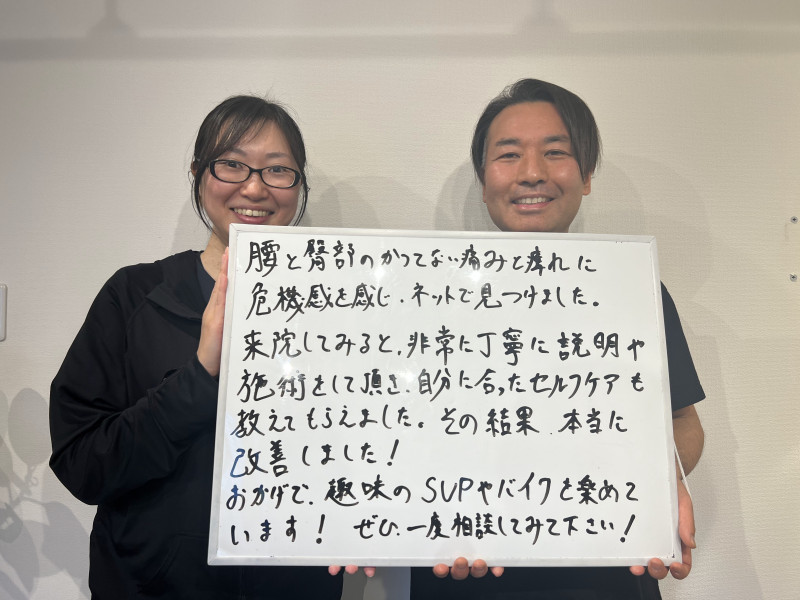 腰と臀部のかつてない痛みと痺れに
危機感を感じ、ネットで見つけました。
来院してみると、非常に丁寧に説明や
施術をして頂き、自分に合ったセルフケアも
教えてもらえました。その結果、本当に
改善しました!
おかげで、趣味のSUPやバイクを楽めて
います! ぜひ、一度相談してみて下さい!